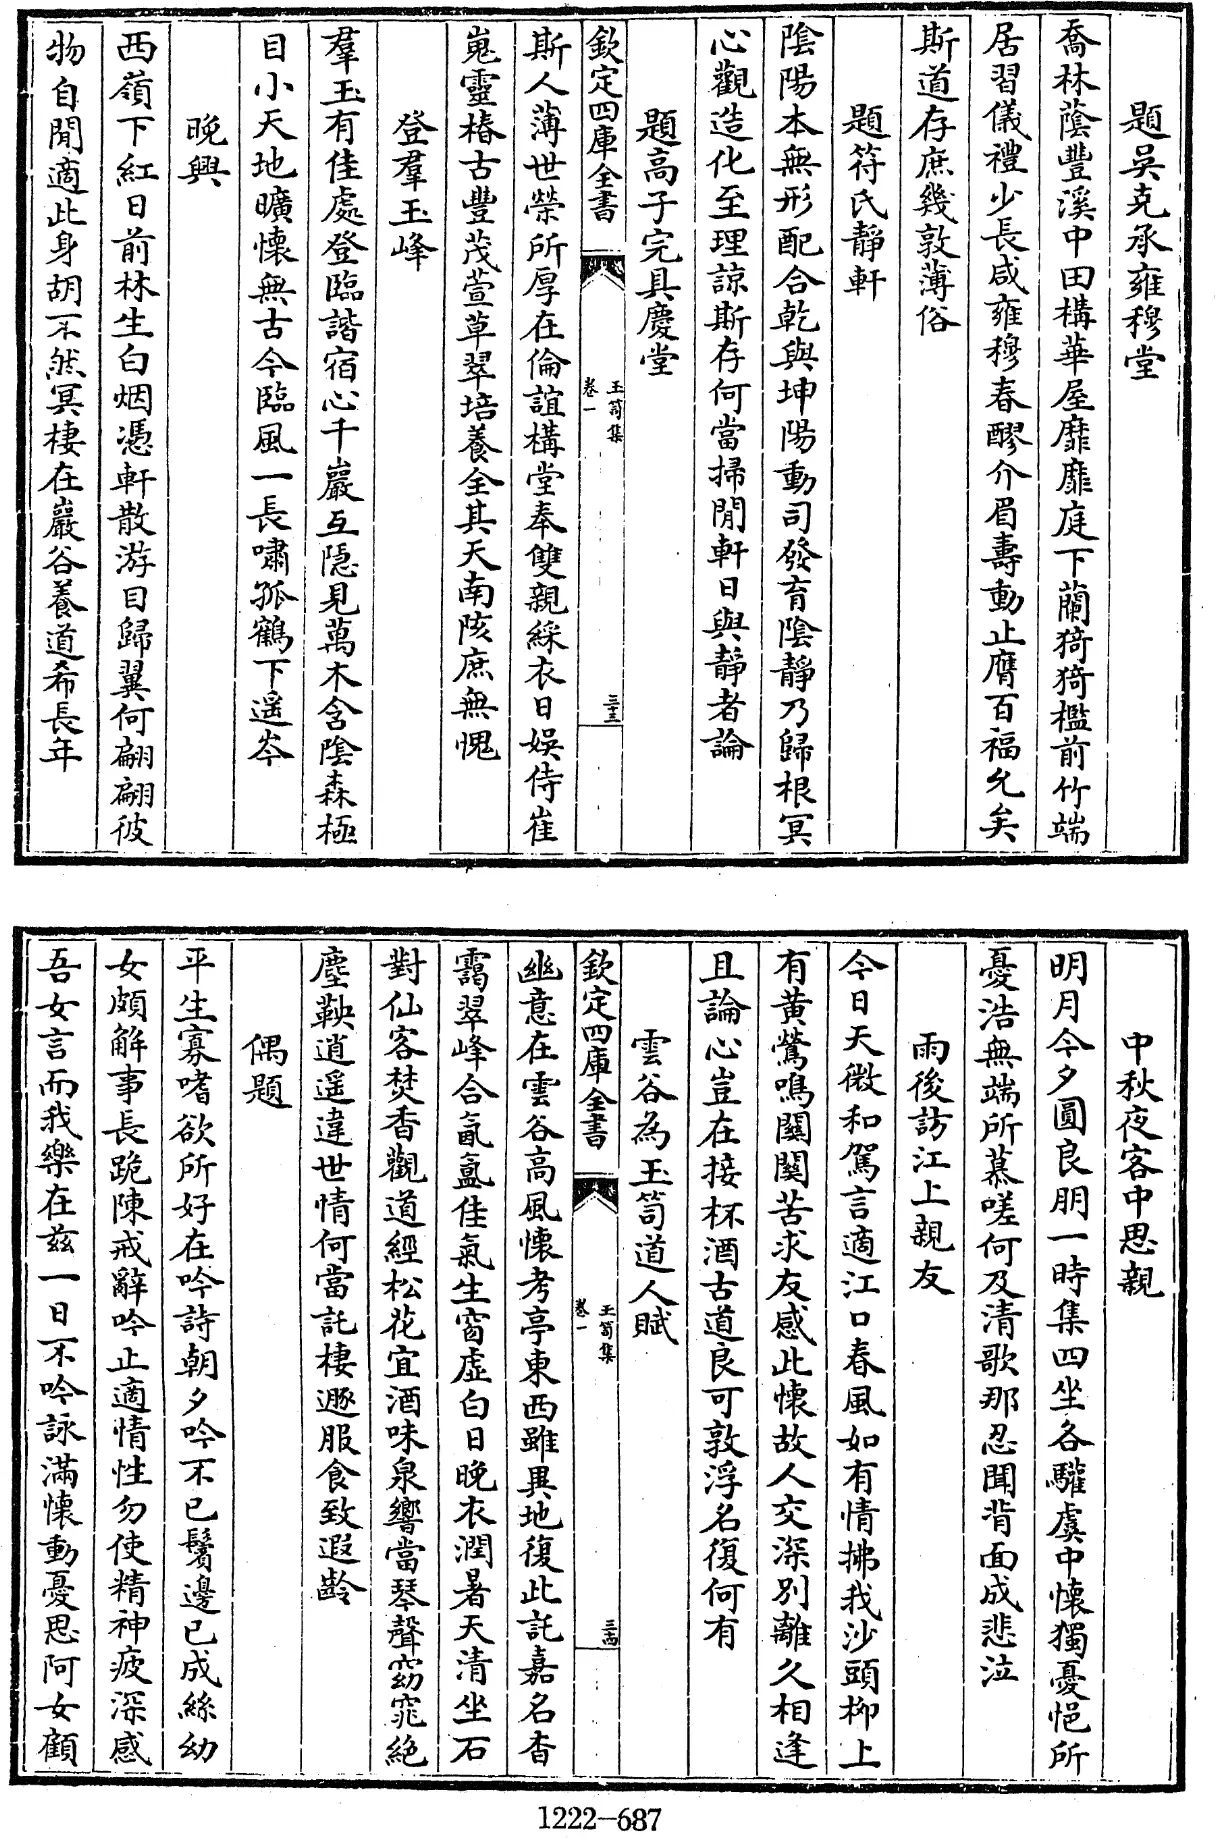 題吳克承雍穆堂
喬林蔭豐溪中田構華屋靡靡庭下蘭猗猗檻前竹端
居習儀禮少長咸雍穆春醪介眉壽動止膺百福允矣
斯道存庶幾敦薄俗
題符氏靜軒
陰陽本無形配合乾與坤陽動司發育陰靜乃歸根冥
心觀造化至理諒斯存何當掃閒軒日與靜者論
題高子完具慶堂
欽定四庫全書
玉笥集
卷一
三十三
斯人薄世榮所厚在倫誼構堂奉雙親綵衣日娛侍崔
嵬靈椿古豐茂萱草翠培養全其天南陔庶無愧
登羣玉峰
羣玉有佳處登臨諧宿心千巖互隠見萬木含陰森極
目小天地曠懷無古今臨風一長嘯孤鶴下遥岑
晚興
西嶺下紅日前林生白烟憑軒散游目歸翼何翩翩彼
物自閒適此身胡不然冥棲在巖谷養道希長年
中秋夜客中思親
明月今夕圓良朋一時集四坐各驩虞中懷獨憂悒所
憂浩無端所慕嗟何及清歌那忍聞背面成悲泣
雨後訪江上親友
今日天微和駕言適江口春風如有情拂我沙頭柳上
有黄鶯鳴關關苦求友感此懷故人交深别離久相逢
且論心豈在接杯酒古道良可敦浮名復何有
雲谷為玉笥道人賦
欽定四庫全書
玉笥集
卷一
三十四
幽意在雲谷高風懷考亭東西雖異地復此託嘉名杳
靄翠峰合氤氲佳氣生窗虚白日晚衣潤暑天清坐石
對仙客焚香觀道經松花宜酒味泉響當琴聲窈窕絶
塵鞅逍遥違世情何當託棲遯服食致遐齡
偶題
平生寡嗜欲所好在吟詩朝夕吟不已鬢邊已成絲幼
女頗解事長跪陳戒辭吟止適情性勿使精神疲深感
吾女言而我樂在兹一日不吟詠滿懷動憂思阿女顧
1222-687